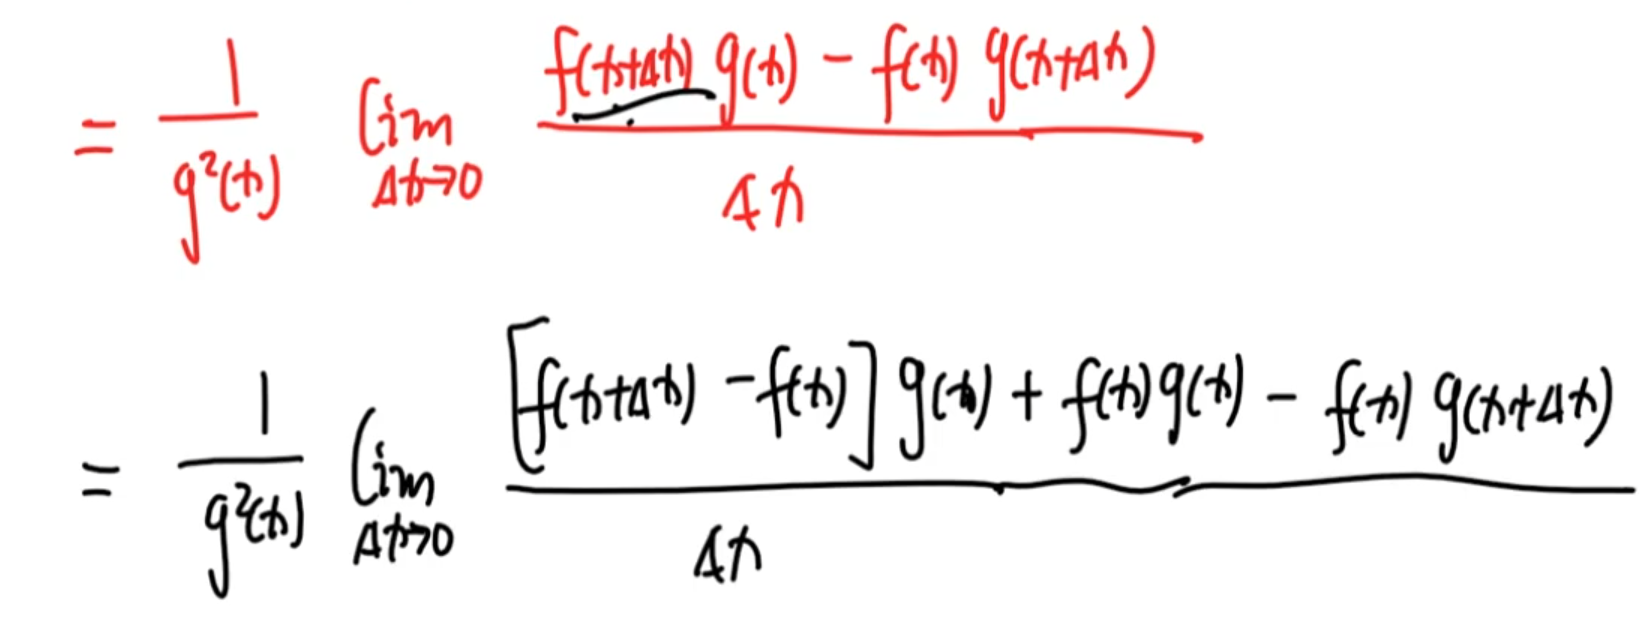 = 1/g²(x) lim Δx→0 f(x+Δx) g(x) − f(x) g(x+Δx) / Δx
= 1/g²(x) lim Δx→0 [f(x+Δx) − f(x)] g(x) + f(x) g(x) − f(x) g(x+Δx) / Δx